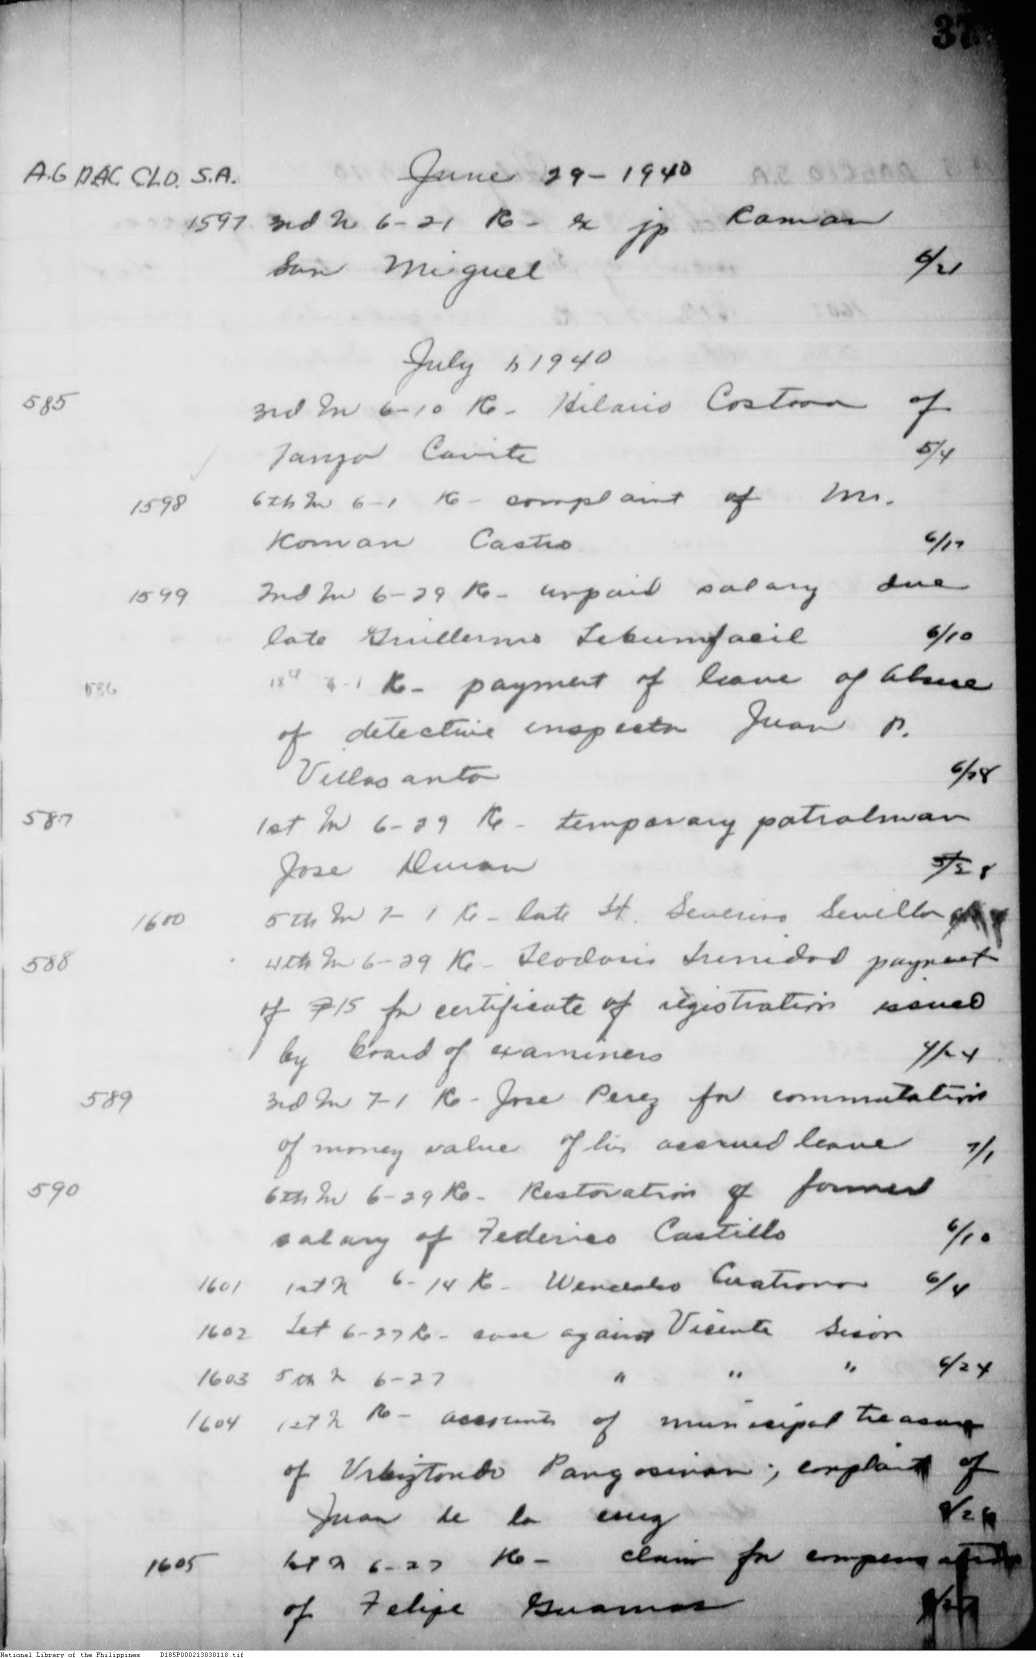 37
A.G DAC CLD. S.A. June 29 - 1940
1597 3rd In 6-21 Re - ex jp Roman
San Miguel 6/21
July 1, 1940
585 3rd In 6-10 Re - Hilario Costova of
Tanza Cavite 5/4
1598 6th In 6-1 Re - complaint of Mr.
Roman Castro 6/17
1599 2nd In 6-29 Re - unpaid salary due
late Guillermo Lebumfacil 6/10
586 Re - payment of leave of absence
of detective inspector Juan P.
Villasanta 6/28
587 1st In 6-29 Re - temporary patrolman
Jose Duran 5/28
1600 5th In 7-1 Re - late St. Severino Sevilla
588 4th In 6-29 Re - Teodoris Trinidad payment
of ₱15 for certificate of registration issued
by board of examiners 4/24
589 3rd In 7-1 Re - Jose Perez for commutation
of money value of his accrued leave 7/1
590 6th In 6-29 Re - Restoration of former
salary of Federico Castillo 6/10
1601 1st In 6-14 Re - Wenceslao 6/4
1602 Let 6-27 Re - case against Vicente Sison
1603 5th In 6-27 " " " 6/24
1604 1st In Re - accounts of municipal treasurer
of Urbiztondo Pangasinan; complaint of
Juan de la Cruz
1605 1st In 6-27 Re - claim for compensation
of Felipe Guamos
National Library of the Philippines D185P000213038118.tif